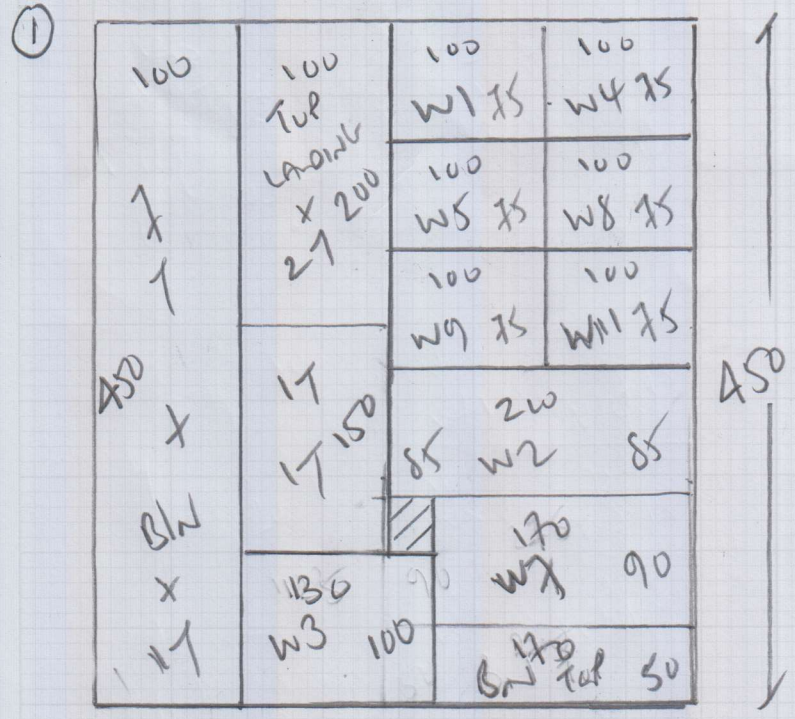 1
100
7
1
450
x
B/N
x
1T
100
TOP
LANDING
x 200
21
1T
150
1T
1130
W3 100
100
W1 75
100
W4 75
100
W5 75
100
W8 75
100
W9 75
100
W11 75
200
85 W2 85
170
W7 90
90
170
B/N TOP 50
450